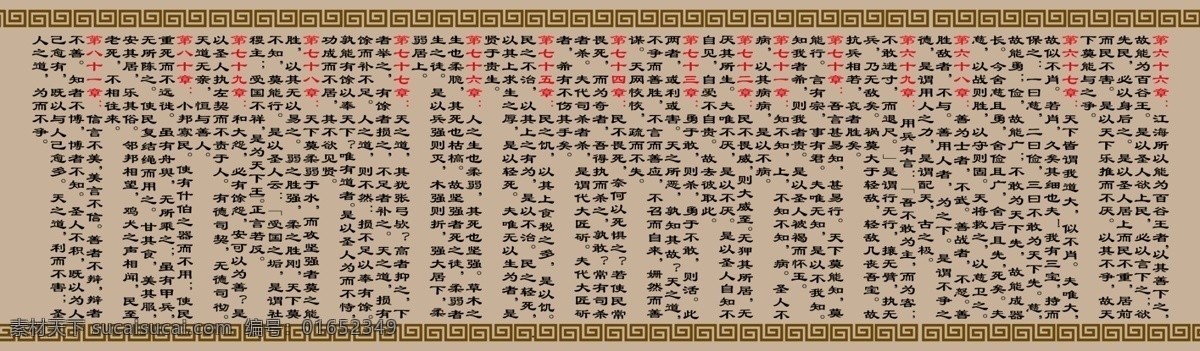 第六十六章：江海所以能为百谷王者，以其善下之，
故能为百谷王。是以圣人欲上民，必以言下之；欲
先民，必以身后之。是以圣人居上而民不重，居前
而民不害。是以天下乐推而不厌。以其不争，故天
下莫能与之争。
第六十七章：天下皆谓我道大，似不肖。夫唯大，
故似不肖。若肖，久矣其细也夫！我有三宝，持而
保之：一曰慈，二曰俭，三曰不敢为天下先。慈
故能勇；俭故能广；不敢为天下先，故能成器
长。今舍慈且勇；舍俭且广；舍后且先；死矣！夫
慈，以战则胜，以守则固。天将救之，以慈卫之。
第六十八章：善为士者，不武；善战者，不怒；善
胜敌者，不与；善用人者，为之下。是谓不争之
德，是谓用人之力，是谓配天，古之极。
第六十九章：用兵有言：「吾不敢为主，而为客；
不敢进寸，而退尺。」是谓行无行；攘无臂；扔无敌；执
兵；乃无敌矣。祸莫大于轻敌，轻敌几丧吾宝。故
执兵相若，哀者胜矣。
第七十章：吾言甚易知，甚易行。天下莫能知，莫
能行。言有宗，事有君。夫唯无知，是以不我知。
知我者希，则我者贵。是以圣人被褐而怀玉。
第七十一章：知不知，尚矣；不知知，病也。圣人不
病，以其病病。夫唯病病，是以不病。
第七十二章：民不畏威，则大威至。无狎其所居，无
厌其所生。夫唯不厌，是以不厌。是以圣人自知不
自见；自爱不自贵。故去彼取此。
第七十三章：勇于敢，则杀，勇于不敢，则活。此
两者，或利或害。天之所恶，孰知其故？天之道，
不争而善胜，不言而善应，不召而自来，繟然而善
谋。天网恢恢，疏而不失。
第七十四章：民不畏死，奈何以死惧之？若使民常
畏死，而为奇者，吾得执而杀之，孰敢？常有司杀
者杀。夫代司杀者杀，是谓代大匠斫。夫代大匠斫
者，希有不伤其手矣。
第七十五章：民之饥，以其上食税之多，是以饥。
民之难治，以其上之有为，是以难治。民之轻死，
以其上求生之厚，是以轻死。夫唯无以生为者，是
贤于贵生。
第七十六章：人之生也柔弱，其死也坚强。草木之
生也柔脆，其死也枯槁。故坚强者死之徒，柔弱者
生之徒。是以兵强则灭，木强则折。强大居下，柔
弱居上。
第七十七章：天之道，其犹张弓欤？高者抑之，下
者举之，有余者损之，不足者补之。天之道，损有
余而补不足。人之道，则不然：损不足以奉有余。
孰能有余以奉天下？唯有道者。是以圣人为而不恃，
功成而不居，其不欲见贤。
第七十八章：天下莫柔弱于水，而攻坚强者莫之能
胜，以其无以易之。弱之胜强，柔之胜刚，天下莫
不知，莫能行。是以圣人云：「受国之垢，是谓社
稷主；受国不祥，是为天下王。」正言若反。
第七十九章：和大怨，必有余怨；安可以为善？是
以圣人执左契，而不责于人。有德司契，无德司彻。
天道无亲，恒与善人。
第八十章：小邦寡民。使有什伯之器而不用；使民
重死而不远徙。虽有舟舆，无所乘之；虽有甲兵，
无所陈之。使民复结绳而用之。甘其食，美其服，
安其居，乐其俗。邻邦相望，鸡犬之声相闻，民至
老死，不相往来。
第八十一章：信言不美，美言不信。善者不辩，辩者
不善。知者不博，博者不知。圣人不积，既以为人
己愈有，既以与人己愈多。天之道，利而不害；圣
人之道，为而不争。
素材天下 sucaisucai.com 编号：01652349